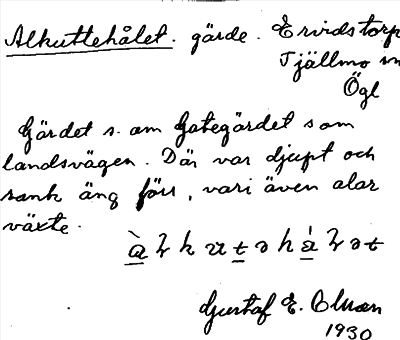 Alkuttehålet. gärde. Ervidstorp
Tjällmo sn
Ögl
Gärdet s. om Gategärdet som
landsvägen. Där var djupt och
sank äng förr, vari även alar
växte.
Gustaf E. Olsson
1930